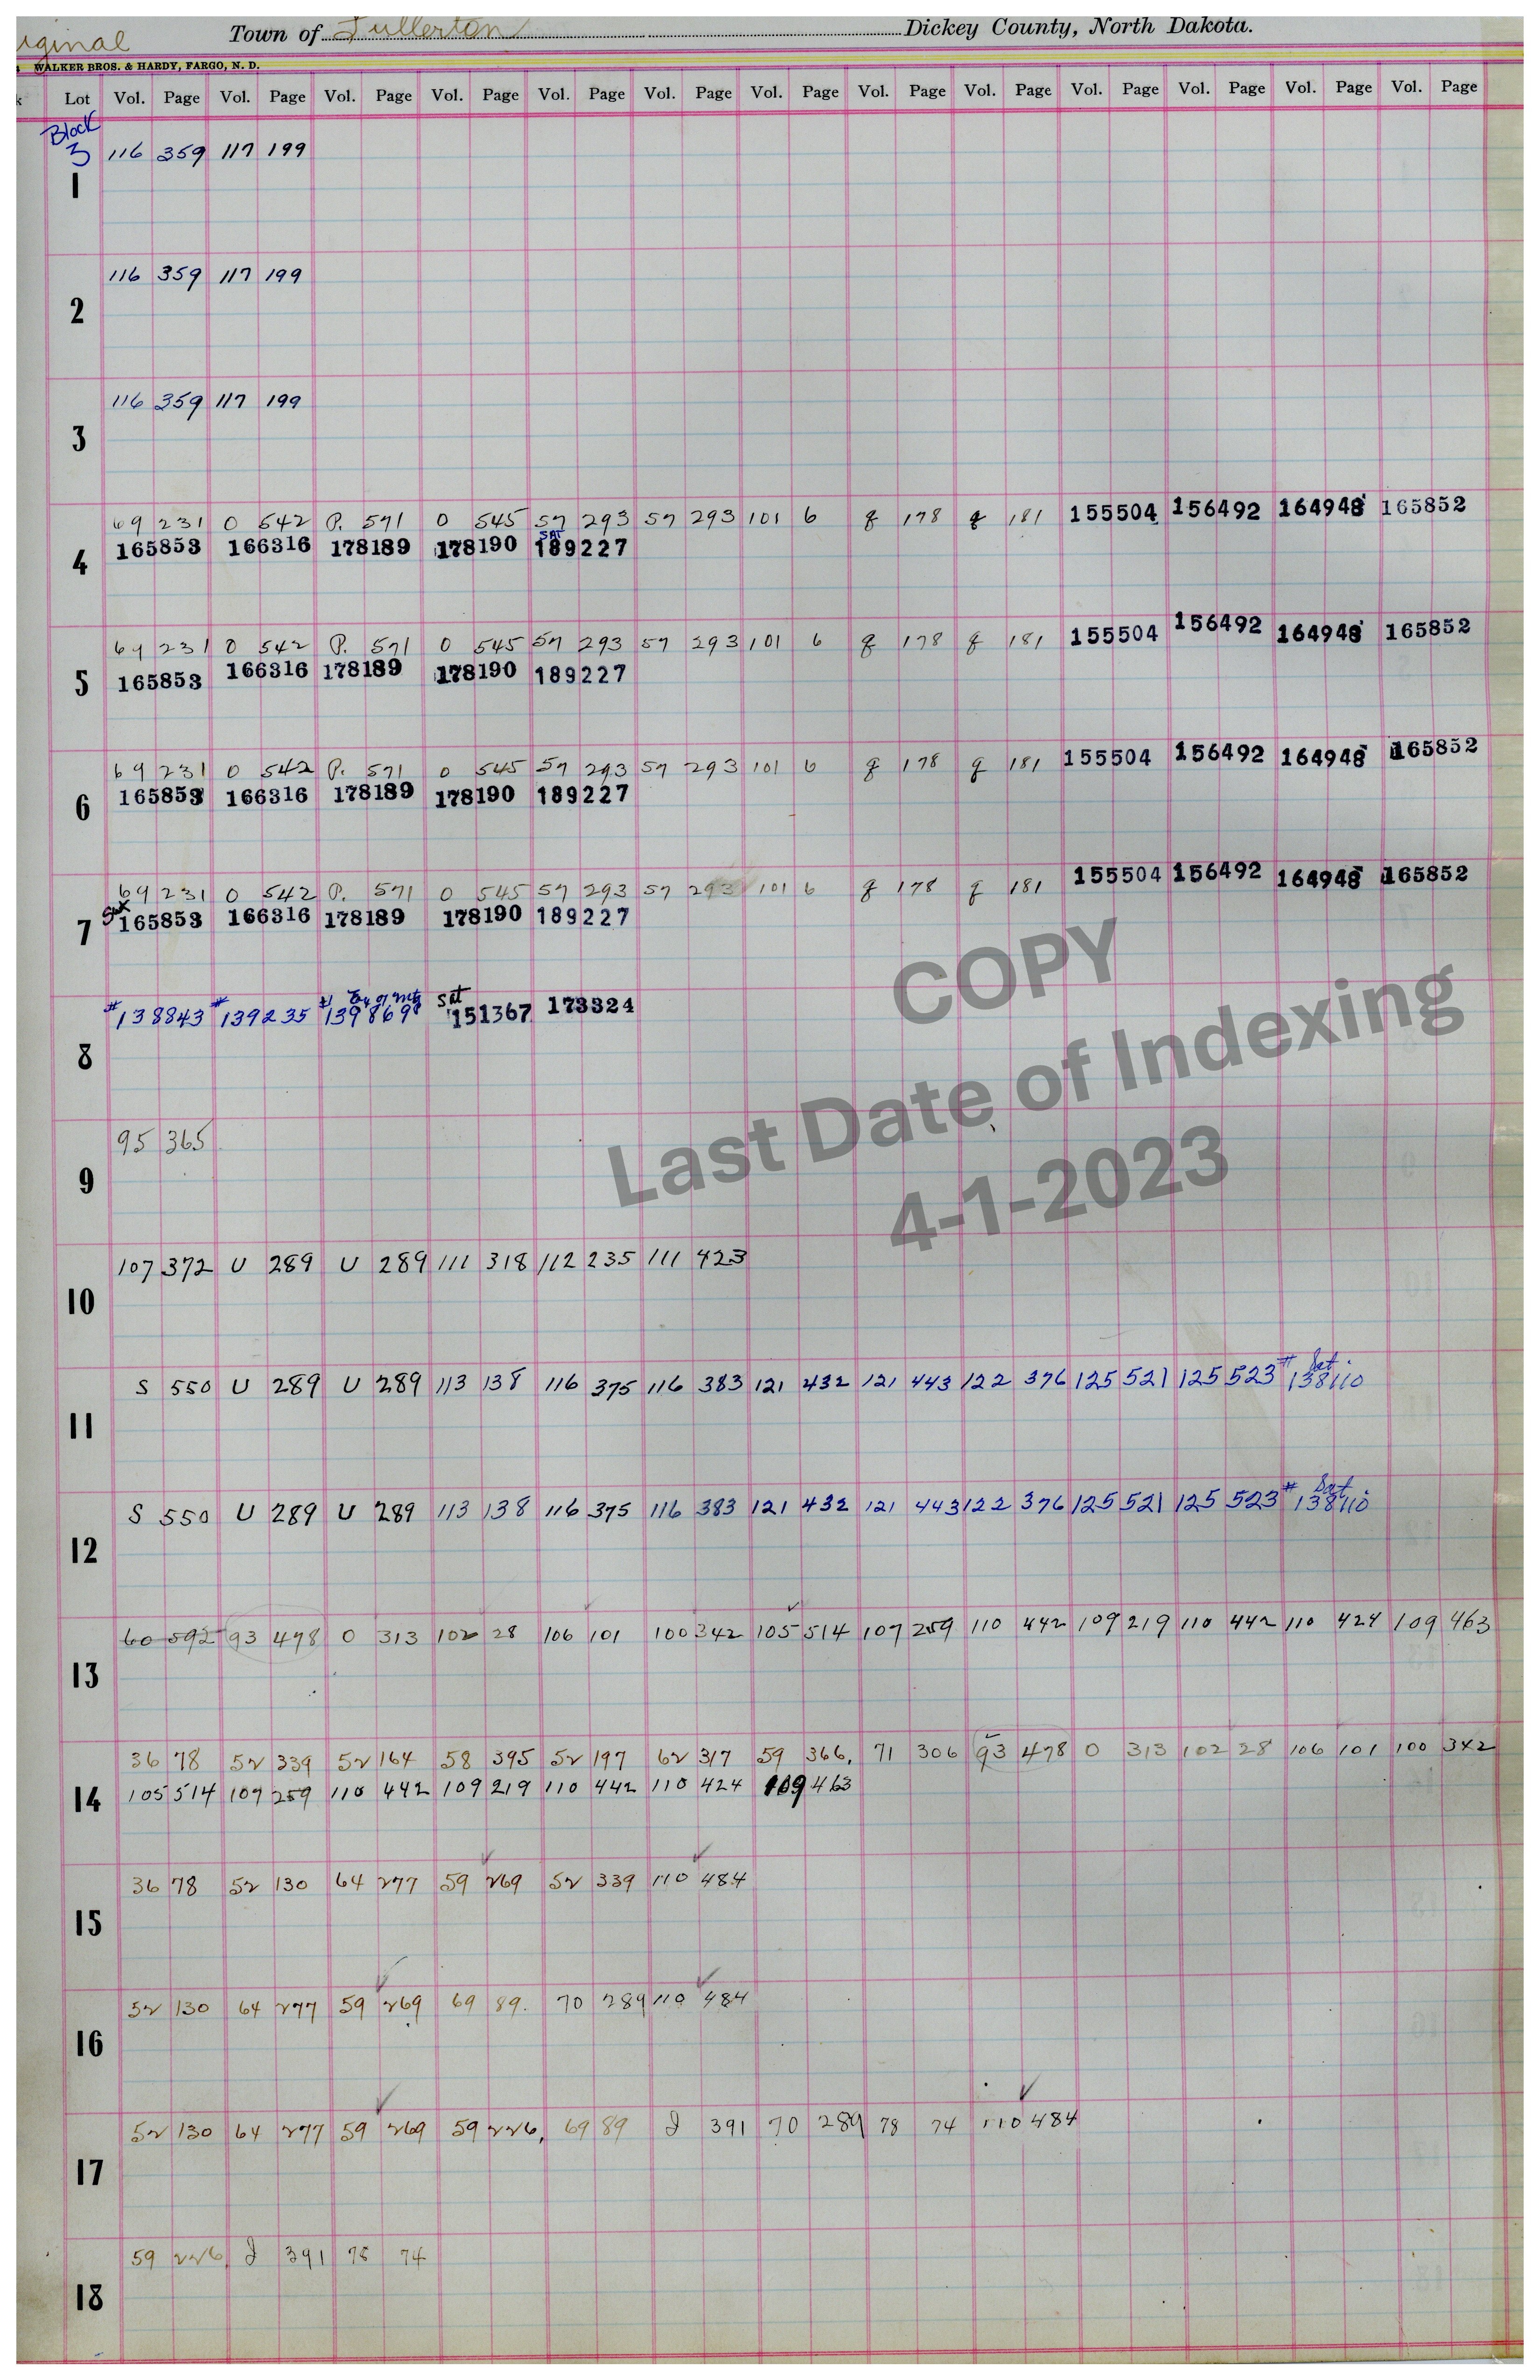 iginal Town of Fullerton Dickey County, North Dakota.
WALKER BROS. & HARDY, FARGO, N. D.
k Lot Vol. Page Vol. Page Vol. Page Vol. Page Vol. Page Vol. Page Vol. Page Vol. Page Vol. Page Vol. Page Vol. Page Vol. Page Vol. Page
Block
3 116 359 117 199
1
116 359 117 199
2
116 359 117 199
3
69 231 O 542 P. 571 O 545 57 293 57 293 101 6 g 178 g 181 155504 156492 164948 165852
SAT
165853 166316 178189 178190 189227
4
69 231 O 542 P. 571 O 545 57 293 57 293 101 6 g 178 g 181 155504 156492 164948 165852
165853 166316 178189 178190 189227
5
69 231 O 542 P. 571 O 545 57 293 57 293 101 6 g 178 g 181 155504 156492 164948 165852
165853 166316 178189 178190 189227
6
69 231 O 542 P. 571 O 545 57 293 57 293 101 6 g 178 g 181 155504 156492 164948 165852
165853 166316 178189 178190 189227
7
of mtg Sat
#138843 #139235 #139869 151367 173324
8
95 365
9
107 372 U 289 U 289 111 318 112 235 111 423
10
Sat.
S 550 U 289 U 289 113 138 116 375 116 383 121 432 121 443 122 376 125 521 125 523 #138110
11
Sat.
S 550 U 289 U 289 113 138 116 375 116 383 121 432 121 443 122 376 125 521 125 523 #138110
12
60 592 93 478 O 313 102 28 106 101 100 342 105 514 107 259 110 442 109 219 110 442 110 424 109 463
13
36 78 52 339 52 164 58 395 52 197 62 317 59 366, 71 306 93 478 O 313 102 28 106 101 100 342
105 514 107 259 110 442 109 219 110 442 110 424 109 463
14
36 78 52 130 64 277 59 269 52 339 110 484
15
52 130 64 277 59 269 69 89. 70 289 110 484
16
52 130 64 277 59 269 59 226, 69 89 J 391 70 289 78 74 110 484
17
59 226, J 391 78 74
18
COPY
Last Date of Indexing
4-1-2023